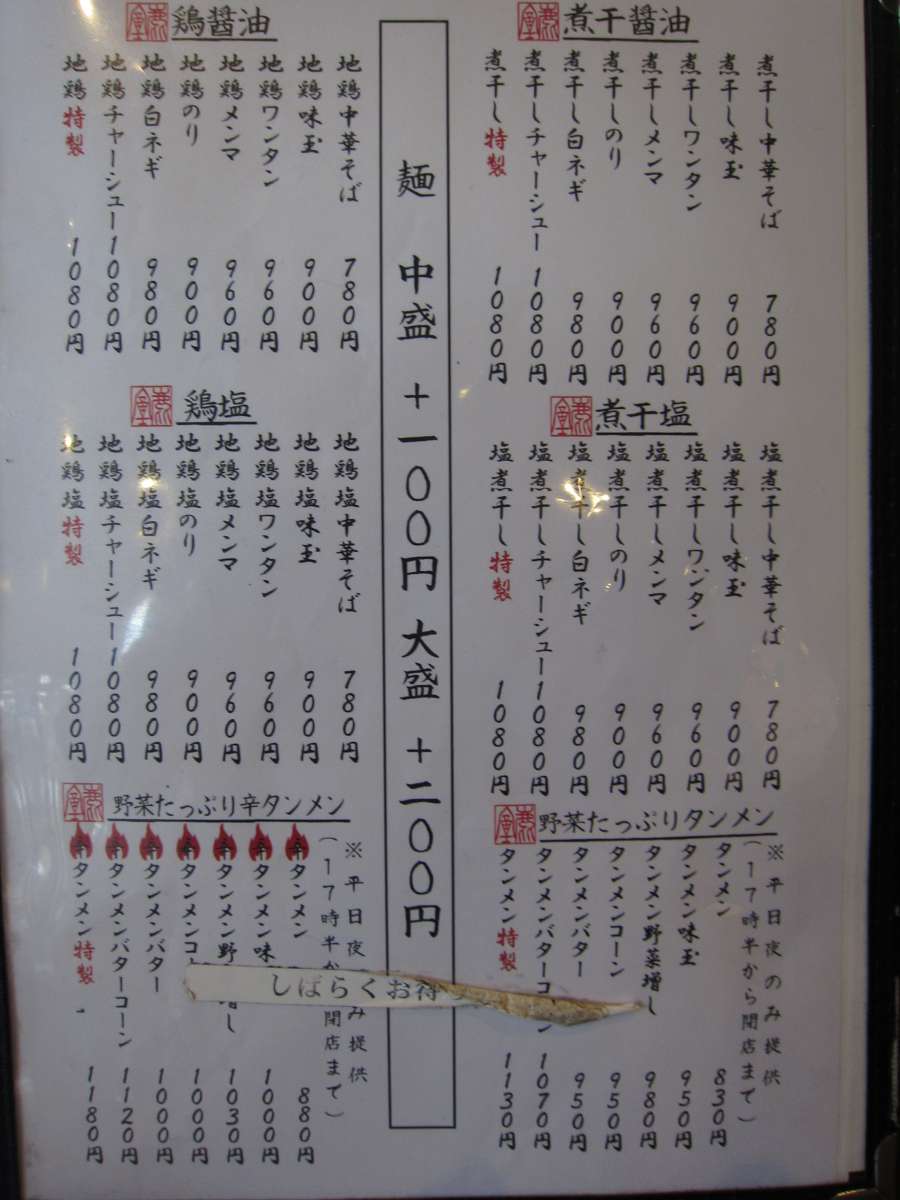 煮干醤油
煮干し中華そば 780円
煮干し味玉 900円
煮干しワンタン 960円
煮干しメンマ 960円
煮干しのり 900円
煮干し白ネギ 980円
煮干しチャーシュー 1080円
煮干し特製 1080円
煮干塩
塩煮干し中華そば 780円
塩煮干し味玉 900円
塩煮干しワンタン 960円
塩煮干しメンマ 960円
塩煮干しのり 900円
塩煮干し白ネギ 980円
塩煮干しチャーシュー 1080円
塩煮干し特製 1080円
野菜たっぷりタンメン
※平日夜のみ提供
(17時半から閉店まで)
タンメン 830円
タンメン味玉 950円
タンメン野菜増し 980円
タンメンコーン 950円
タンメンバター 950円
タンメンバターコーン 1070円
タンメン特製 1130円
麺 中盛 +一〇〇円 大盛 +二〇〇円
鶏醤油
地鶏中華そば 780円
地鶏味玉 900円
地鶏ワンタン 960円
地鶏メンマ 960円
地鶏のり 900円
地鶏白ネギ 980円
地鶏チャーシュー 1080円
地鶏特製 1080円
鶏塩
地鶏塩中華そば 780円
地鶏塩味玉 900円
地鶏塩ワンタン 960円
地鶏塩メンマ 960円
地鶏塩のり 900円
地鶏塩白ネギ 980円
地鶏塩チャーシュー 1080円
地鶏塩特製 1080円
野菜たっぷり辛タンメン
※平日夜のみ提供
(17時半か 閉店まで)
辛タンメン 880円
辛タンメン味 1000円
辛タンメン野 増し 1030円
辛タンメンコ 1000円
辛タンメンバター 1000円
辛タンメンバターコーン 1120円
辛タンメン特製 1180円
しばらくお待